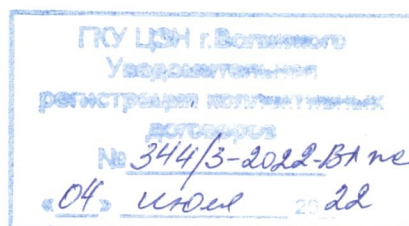 ГКУ ЦЗН г.Волжского
Уведомительная
регистрация коллективных
договоров
№ 344/3-2022-ВЛ пс
«04» июля 2022